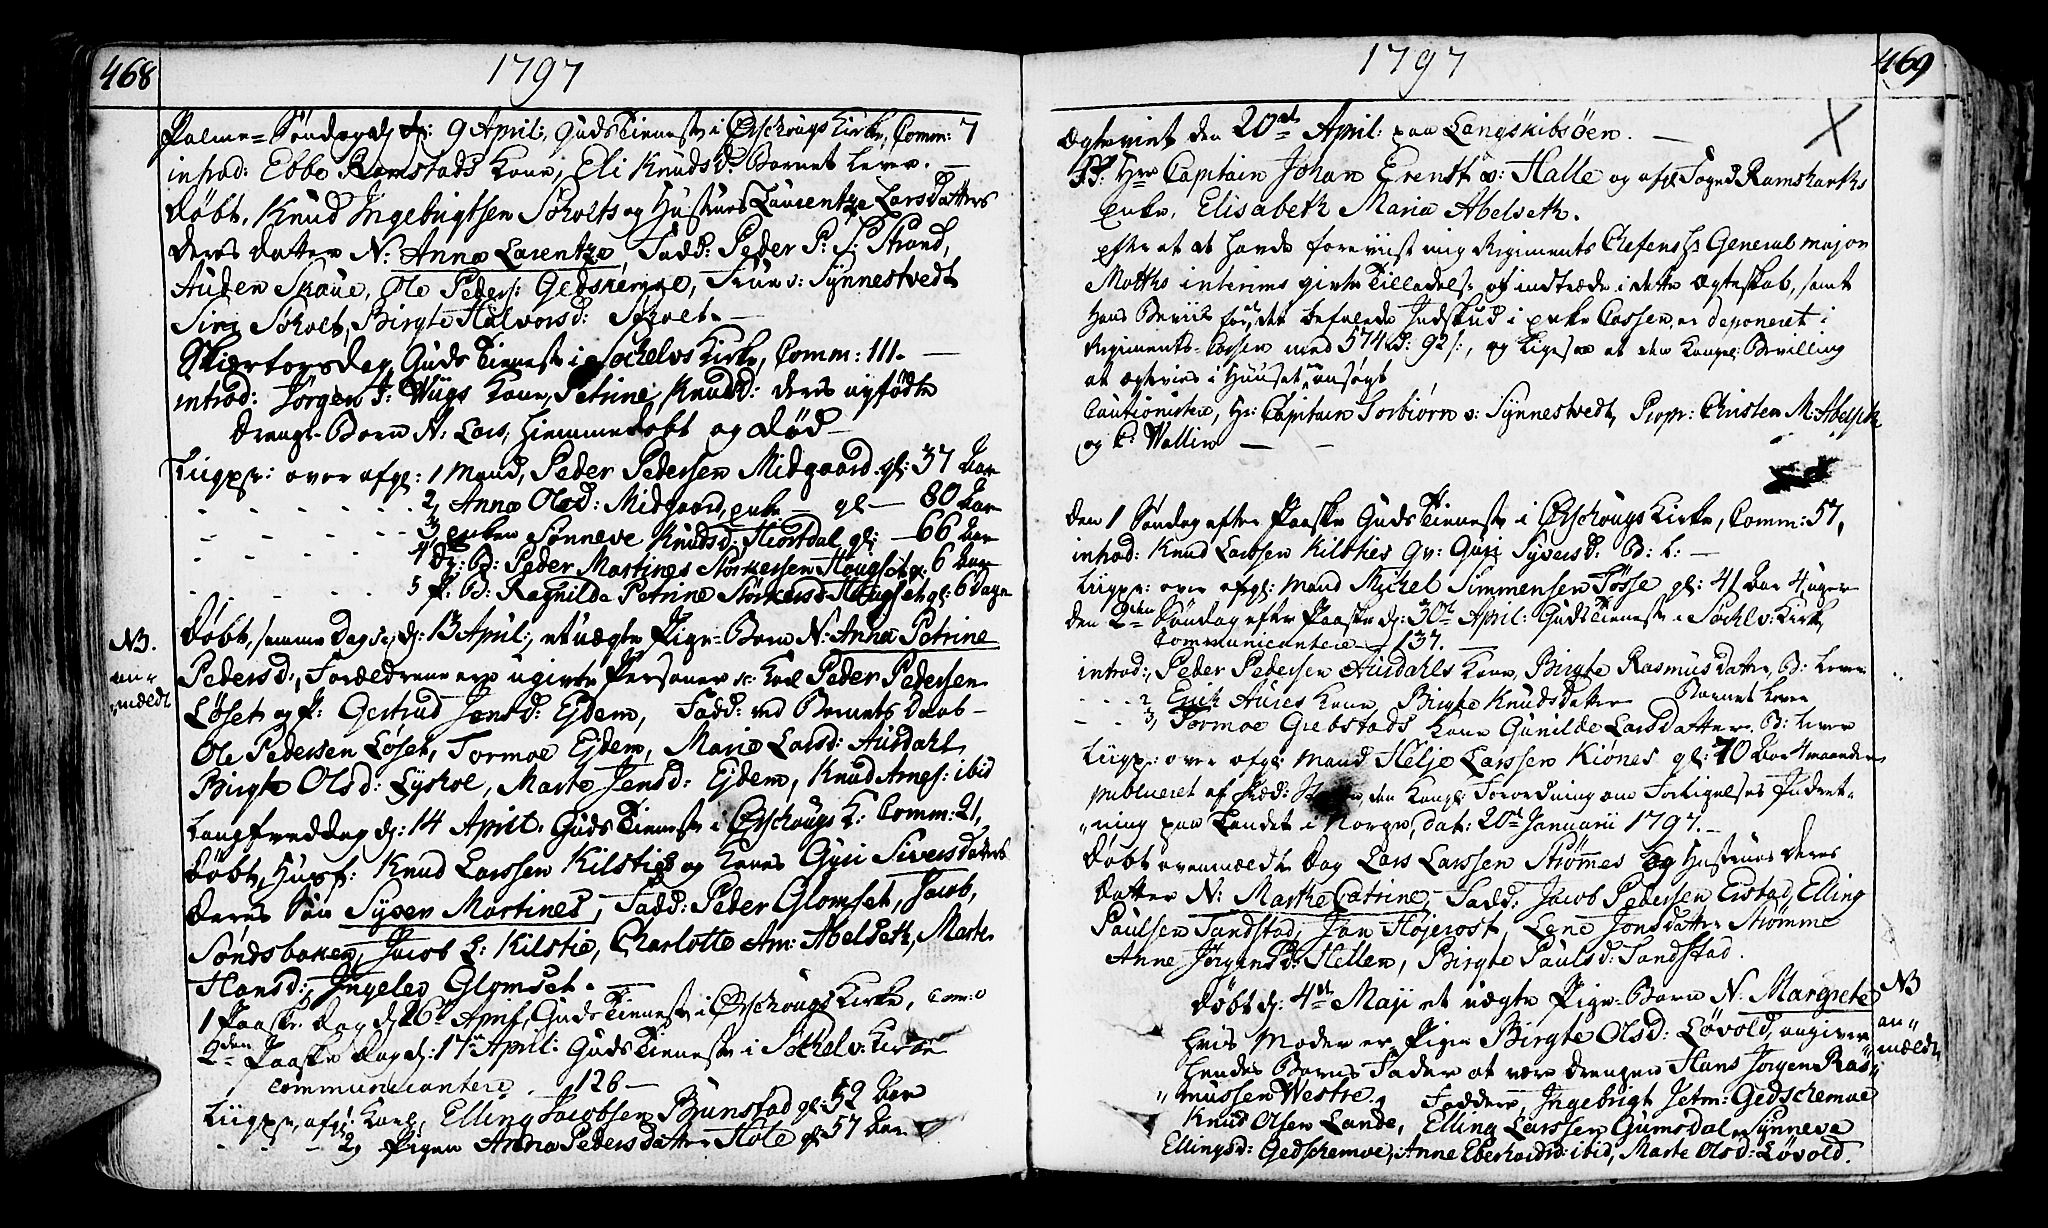 468
1797
Palme=Søndag d: 9 April: Guds Tieneste i Ørschougs Kirke, Comm: 7
introd: Ebbe Ramstads Kone, Eli Knudsd: Barnet lever. —
Døbt, Knud Ingebrigtsen Søholts og Hustrues Laurentze Larsdatters
deres datter N: Anna Larentze, Fadd: Peder P: S: Strand,
Auden Skaue, Ole Peders: Gedskemoe, Frue v: Synnestvedt
Siri Søholt, Birgte Halvorsd: Søholt. —
Skiertorsdag, Guds Tieneste i Sochelvs Kirke, Comm: 111. —
introd: Jørgen J: Wiigs Kone, Petrine Knudsd: deres nyfødte
Drenge-Barn N: Lars, hiemmedøbt og død —
Liigpr: over afg: 1 Mand, Peder Pedersen Midgaard gl: 37 Aar
2, Anna Olsd: Midgaard, enke — gl — 80 Aar
3 enken Sønneve Knudsd: Hiortdal gl: — 66 Aar
4 Dr: B: Peder Martines Størkersen Hougset gl: 6 Aar
5 P. B: Ragnilde Petrine Størkersd: Hougset gl: 6 Dage
NB.
an=
=mældt
Døbt, samme Dag d: 13 April:, et uægte Pige-Barn N: Anna Petrine
Pedersd:, Forældrene ere ugivte Personer Karl Peder Pedersen
Løset og P: Gertrud Jensd: Ejdem, Fadd: ved Barnets Daab —
Ole Pedersen Løset, Tormoe Ejdem, Marie Larsd: Aursdahl
Birgte Olsd: Lyshoe, Marte Jensd: Ejdem, Knud Arnes: ibid
Langfreddag d: 14 April: Guds Tieneste i Ørschougs K: Comm: 21,
Døbt, Huusf: Knud Larssen Kilsties og Kones Gyri Siversdatters
deres Søn Syver Martines, Fadd: Peder Glomset, Jacob,
Søndsbaken, Jacob L: Kilstie, Charlotte Am: Abelseth, Marte
Hansd:, Ingeleg Glomset. —
1 Paaske Dag d: 16 April, Guds Tieneste i Ørschougs Kirke, Com: 0
2den Paaske Dag d: 17 April: Guds Tieneste i Sochelv: Kirke
Communicantere . 126 —
Liigpr, afg: 1: Karl, Elling Jacobsen Bunstad gl: 52 Aar
2, Pigen Anna Pedersdatter Hole gl: 57 Aar
1797
469
Ægteviet den 20de April: paa Langskibsøen. —
Hr Captain Johan Ernst v: Halle og afg: Foged Ramsharts
enke, Elisabeth Maria Abelseth.
efter at at havde foreviist mig Regiments Chefens Hr General major
Motths interims givte Tilladelse at indtræde i dette Ægteskab, samt
Hans Beviis for at den befalede Indskud i enke Cassen, er deponeret i
Regiments-Cassen med 574 rd: 92 s:, og ligesaa at den Kongel: Bevilling
at ægtevies i Huuset er ansøgt
Cautionistere, Hr: Capitain Torbiørn v: Synnestvedt, Propr: Christen M: Abelseth
og C: Wallin —
den 1 Søndag efter Paaske Guds Tieneste i Ørschougs Kirke, Comm: 57,
introd: Knud Larssen Kilsties Qv: Guri Syversd: B: l: —
Liigpr: over afg: mand Michel Simmensen Fosse gl: 41 Aar 4, uger
den 2den Søndag efter Paaske d: 30te April: Guds Tieneste i Sochelv: Kirke
Communicantere 137. —
introd:, Peder Pedersen Aursdahls Kone, Birgte Rasmusdatter, B: lever
2, Erich Aures Kone, Birgte Knudsdatter Barnet lever
3, Tormoe Grebstads Kone Gunilde Larsdatter. B: lever
Liigpr: over afg: mand Helje Larssen Kiones gl: 70 Aar 4 maaneder
publiceret af Præd: den Kongel: Forordning om Forligelses Indret=
=ning paa Landet i Norge, dat: 20de Januarii 1797. —
Døbt ovenmældte Dag Lars Larssen Strømmes og Hustrues deres
datter N: Marthe Catrine, Fadd: Jacob Pedersen Erstad, Elling
Paulsen Tandstad, Jan Højerost, Lene Jonsdatter Strømme
Anne Jørgensd: Hellen, Birgte Paulsd: Tandstad.
NB
an=
mældt
Døbt d: 4de Maji et uægte Pige-Barn N: Margrete
hvis Moder er Pigen Birgte Olsd: Løvold, angiver
hendes Barns Fader at være drengen Hans Jørgen Ras=
=mussen Westre. Faddere, Ingebrigt Jetm: Gedschemoe
Knud Olsen Lande, Elling Larssen Gumsdal, Synneve
Ellingsd: Gedschemoe, Anne Eberhardsd: ibid, Marte Olsd: Løvold.